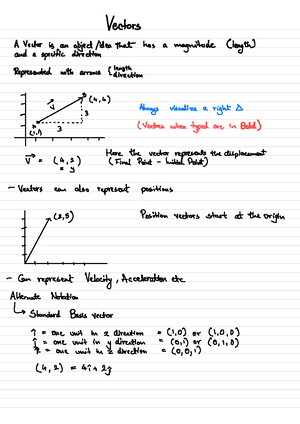 Vectors
A Vector is an object/idea that has a magnitude (length)
and a specific direction
Represented with arrows { length
direction
V
(4,4)
3
3
(1,1)
Always visualize a right Δ
(Vectors when typed are in Bold)
V = (4,2)
Here the vector represents the displacement
(Final Point - Initial Point)
- Vectors can also represent positions
(2,5)
Position vectors start at the origin
- Can represent Velocity, Acceleration etc
Alternate Notation
↳ Standard Basis vector
î = one unit in x direction = (1,0) or (1,0,0)
ĵ = one unit in y direction = (0,1) or (0,1,0)
k̂ = one unit in z direction = (0,0,1)
(4,2) = 4î + 2ĵ